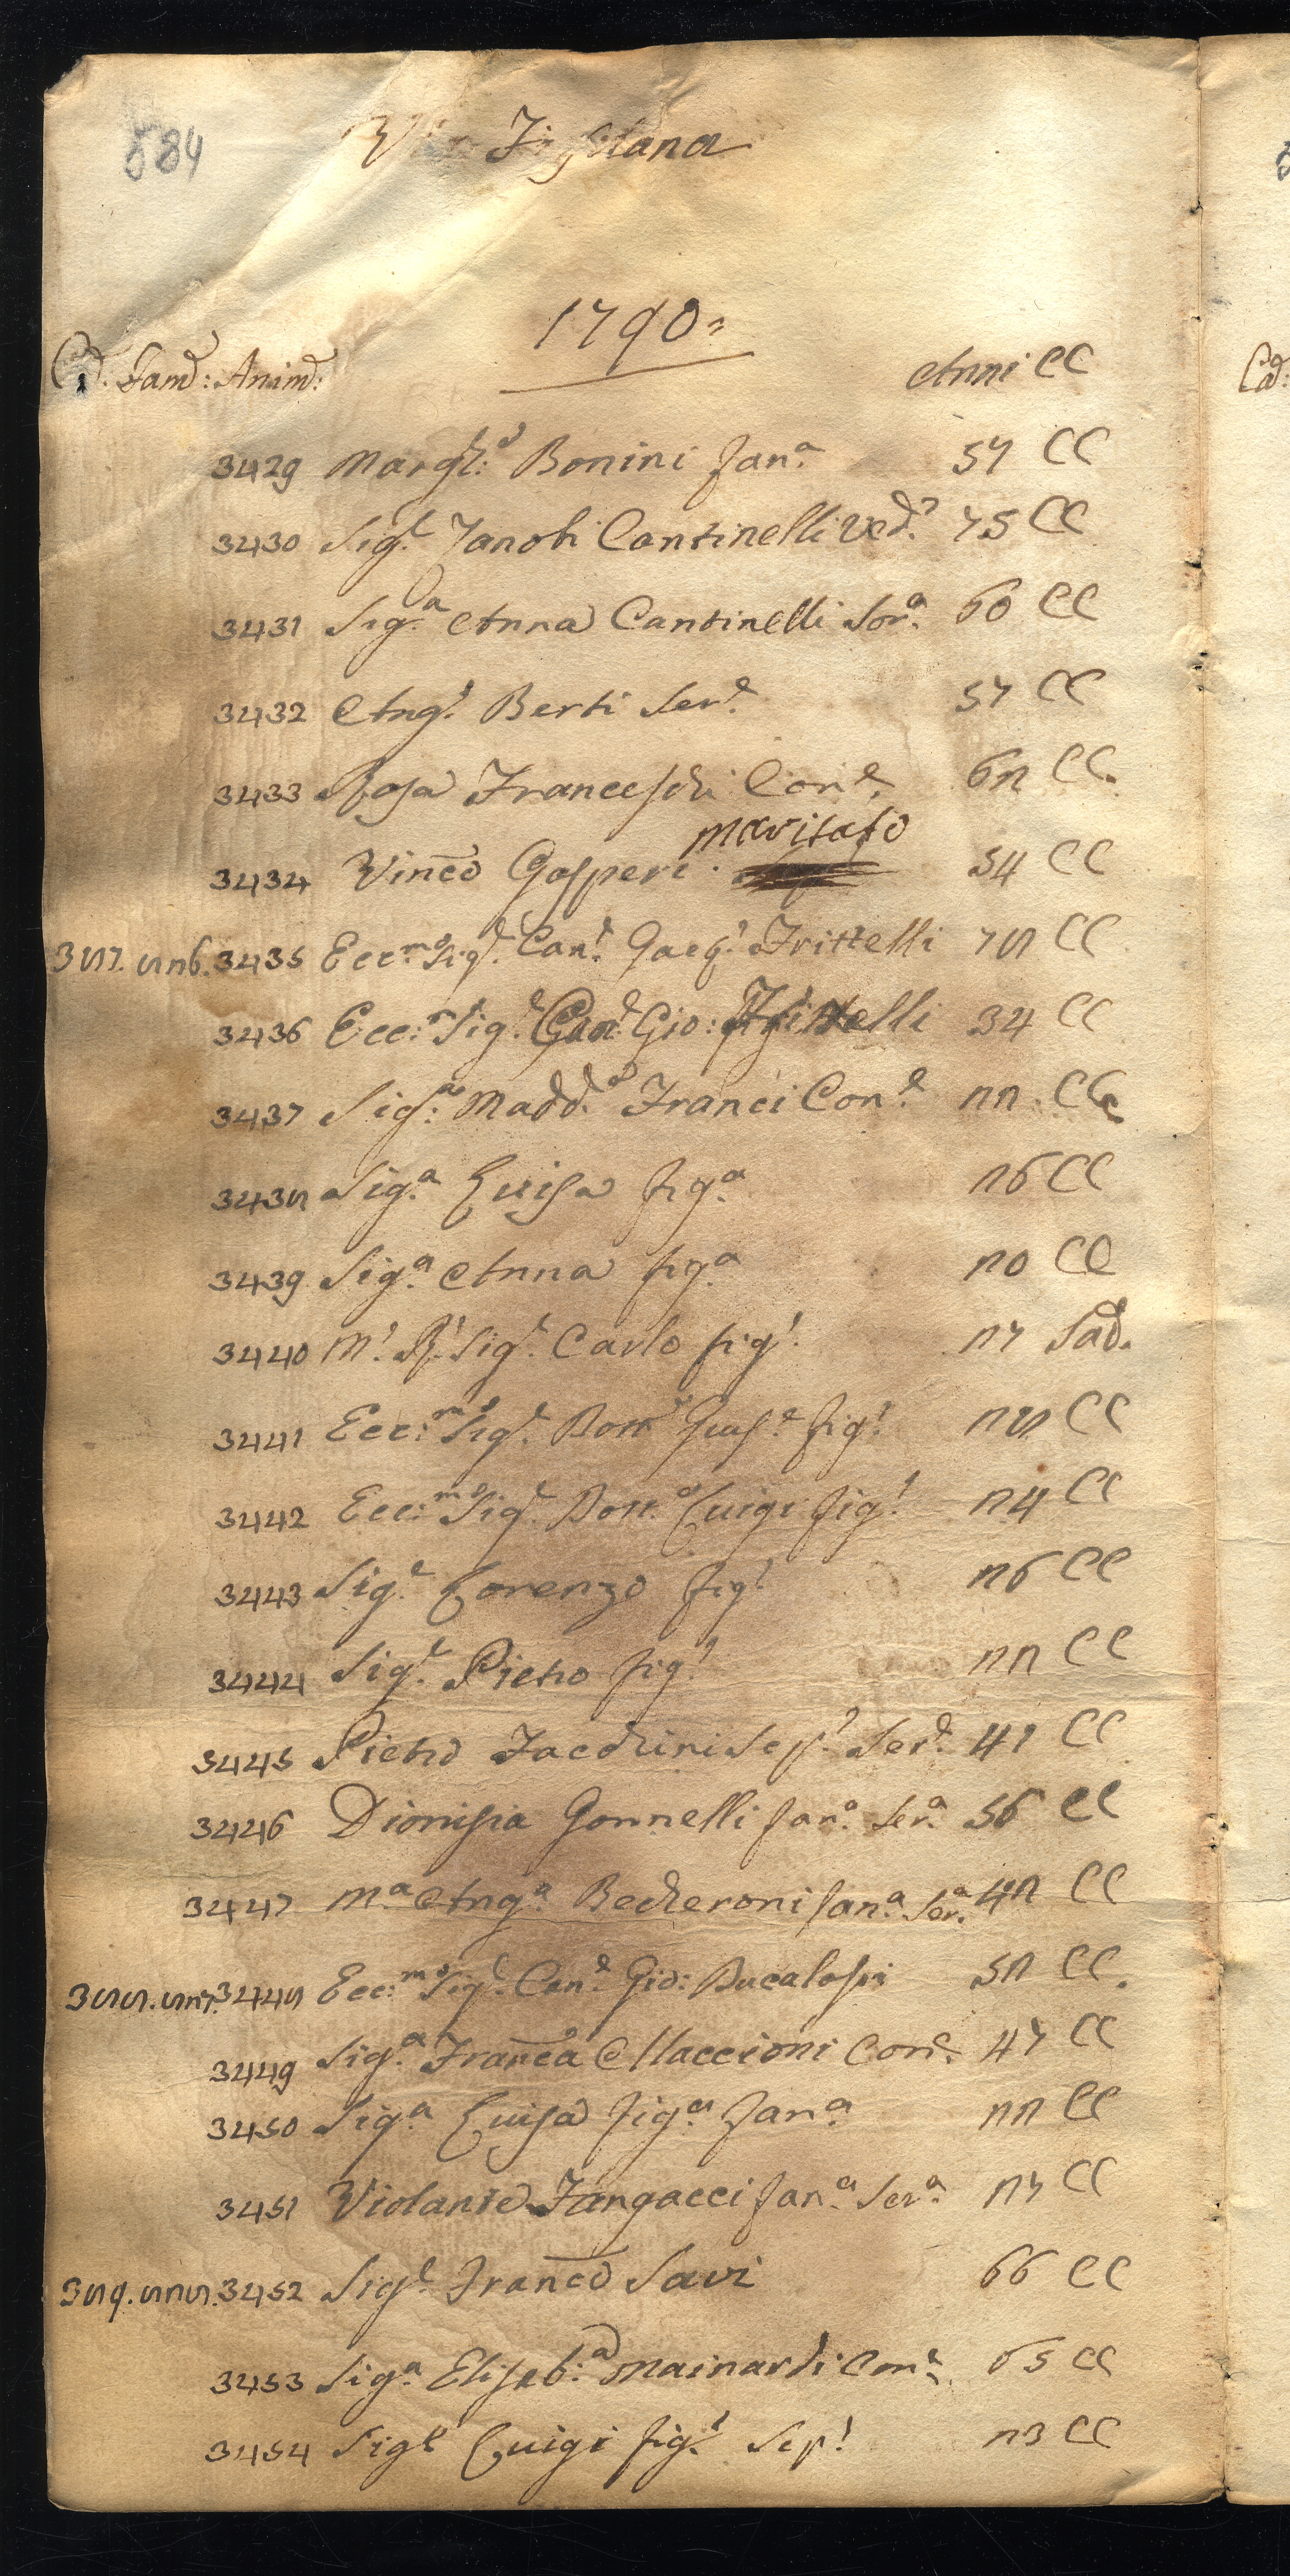 584
Via Fiesolana
1790=
Cas. Fam: Anim:
Anni CC
3429 Margh:a Bonini fan.a 57 CC
3430 Sig.r Zanobi Cantinelli Ved.o 75 CC
3431 Sig.a Anna Cantinelli Sor.a 60 CC
3432 Ang.l Berti Ser.e 57 CC
3433 Rosa Franceschi Con.e 62 CC.
3434 Vinco Gasperi maritato 54 CC
387. 826. 3435 Ecc.mo Sig.r Can.e Gasp.o Frittelli 78 CC
3436 Ecc:mo Sig.r Can.e Gio: Frittelli 34 CC
3437 Sig.a Madd.a Franci Con.e 22. CC
3438 Sig.a Luisa fig.a 26 CC
3439 Sig.a Anna fig.a 20 CC
3440 M.o R.o Sig.r Carlo fig.o 27 Sad.
3441 Ecc:mo Sig.r Dott.r Gius.e fig.o 28 CC
3442 Ecc:mo Sig.r Dott.r Luigi fig.o 24 CC
3443 Sig.r Lorenzo fig.o 26 CC
3444 Sig.r Pietro fig.o 22 CC
3445 Pietro Facchini Sep.o Ser.e 41 CC
3446 Dionisia Gonnelli fan.a Ser.a 56 CC
3447 M.a Ang.a Becheroni fan.a Ser.a 42 CC
388. 827. 3448 Ecc:mo Sig.r Can.e Gio: Bucalossi 52 CC.
3449 Sig.a Franca Maccioni Con.e 47 CC
3450 Sig.a Luisa fig.a fan.a 22 CC
3451 Violante Fangacci fan.a Ser.a 27 CC
389. 828. 3452 Sig.r Franco Savi 66 CC
3453 Sig.a Elisab:a Mainardi Con.e 65 CC
3454 Sig.r Luigi fig.o Sep.o 23 CC